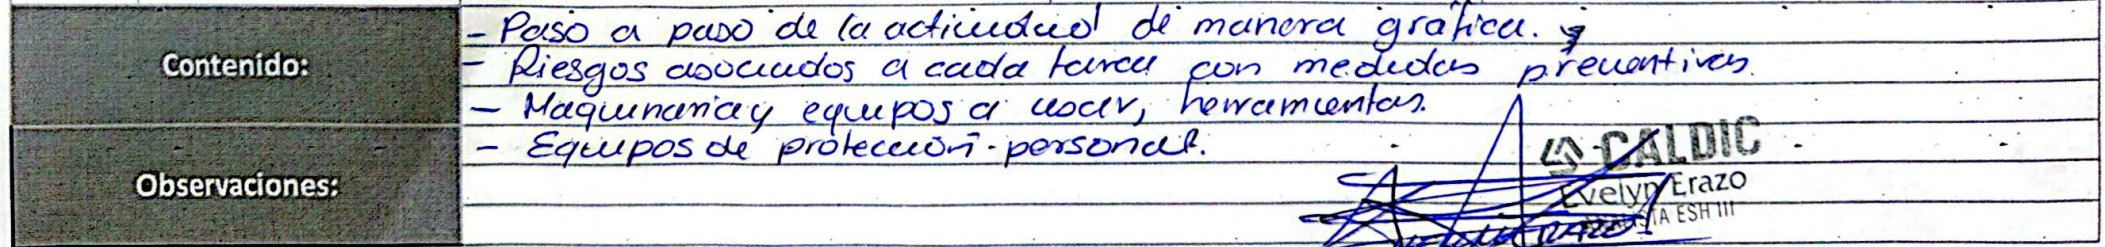 Contenido:
- Paso a paso de la actividad de manera gráfica.
- Riesgos asociados a cada tarea con medidas preventivas.
- Maquinaria y equipos a usar, herramientas.
- Equipos de protección personal.
Observaciones:
CALDIC
Evelyn Erazo
ANALISTA ESH III